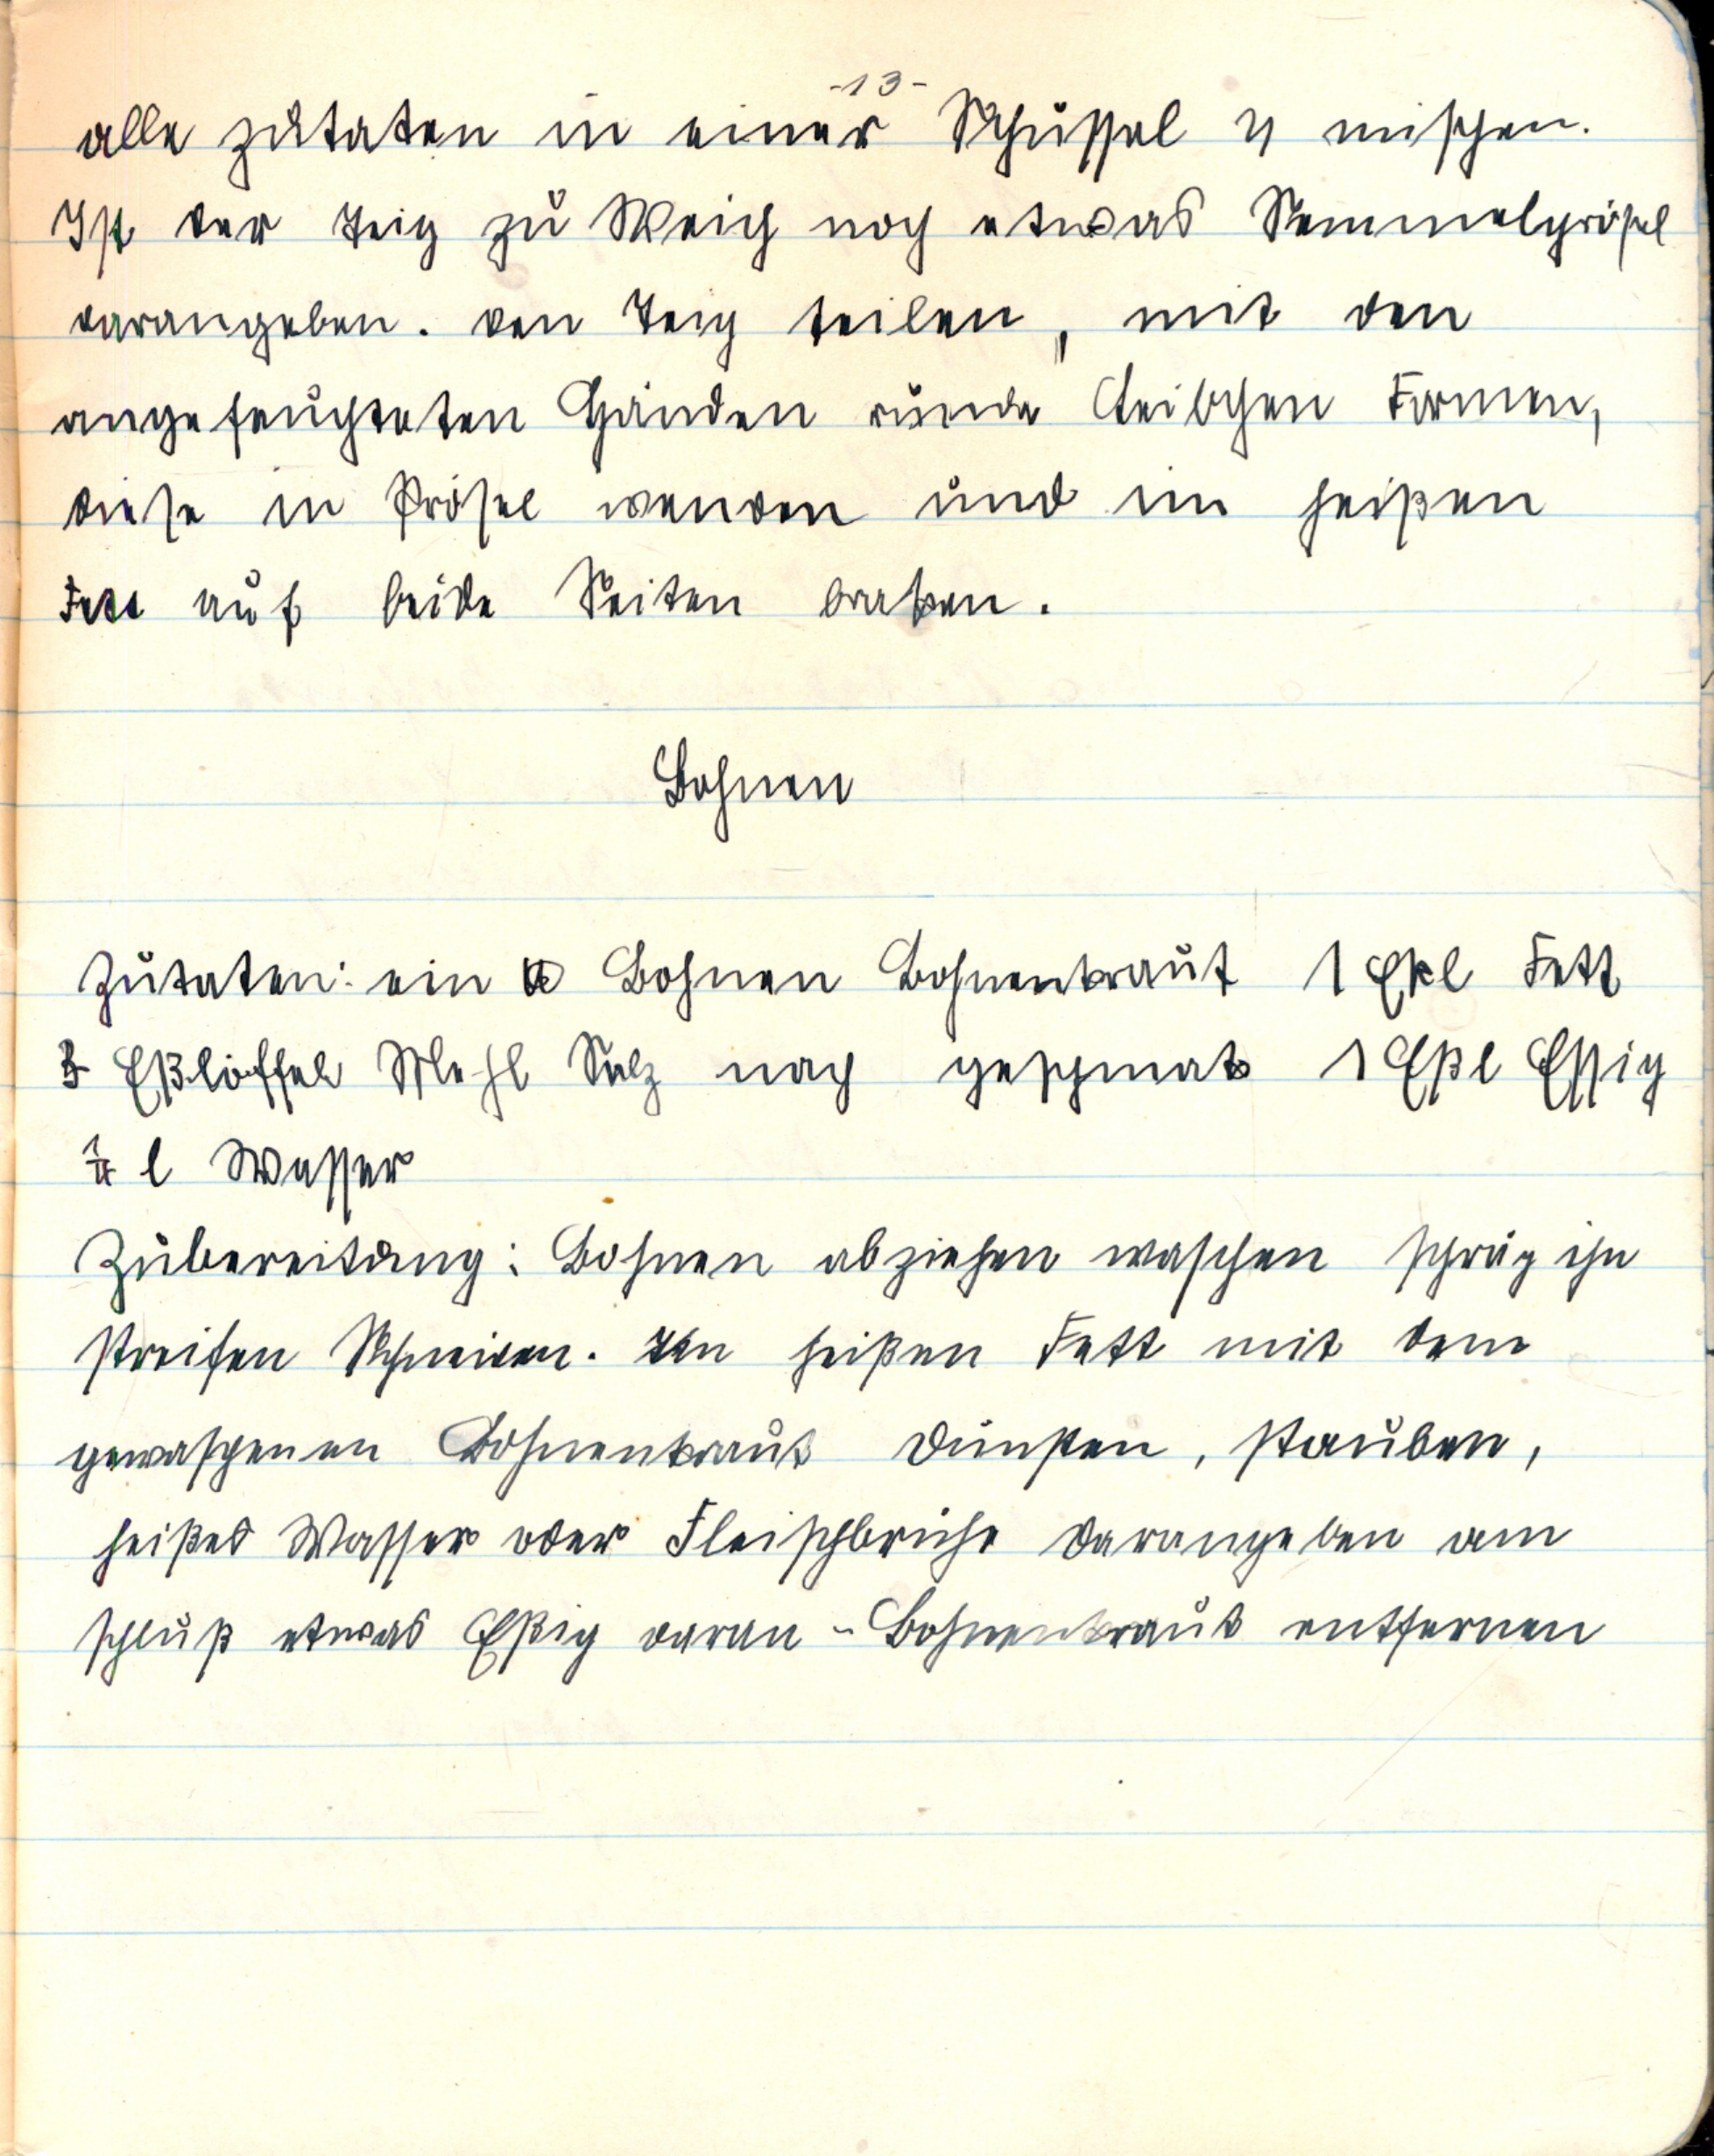 -13-
alle zutaten in einer Schüssel mischen.
Ist der Teig zu Weich noch etwas Semmelprösel
darangeben. den Teig teilen, mit den
angefeuchteten Händen runde Leibchen Formen,
diese in Prösel wenden und im heißen
Fett auf beide Seiten braten.
Bohnen
Zutaten: ein Bohnen Bohnenkraut 1 Eßl Fett
Eßlöffel Mehl Salz nach geschmak 1 Eßl Essig
l Wasser
Zubereitung: Bohnen abziehen waschen schräg ihn
streifen Schneiden. Im heißen Fett mit dem
gewaschenen Bohnenkraut dünsten, stauben,
heißes Wasser oder Fleischbrühe darangeben am
schluß etwas Eßig daran - Bohnenkraut entfernen